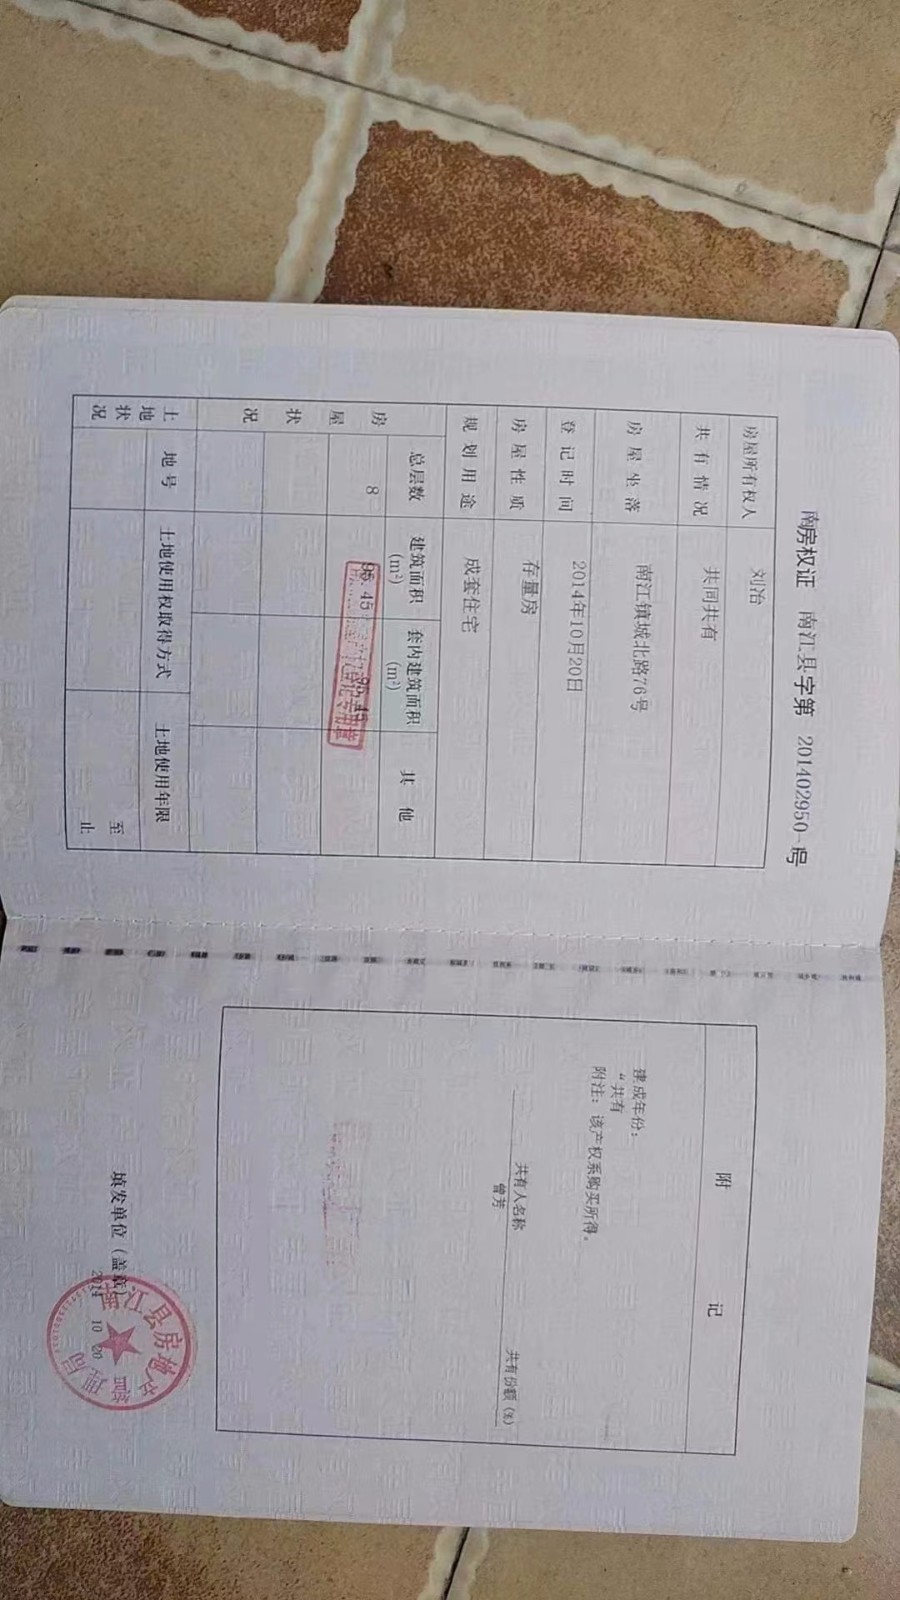 南房权证 南江县字第 201402950 号
房屋所有权人 刘冶
共有情况 共同共有
房屋坐落 南江镇城北路76号
登记时间 2014年10月20日
房屋性质 存量房
规划用途 成套住宅
房屋状况
总层数 建筑面积(m²) 套内建筑面积(m²) 其他
8 96.45
登记专用章
土地状况
地号 土地使用权取得方式 土地使用年限
至 止
附 记
建成年份:
“共有
附注: 该产权系购买所得。
共有人名称 共有份额(%)
曾芳
填发单位(盖章)
2014 10 20
南江县房地产管理局